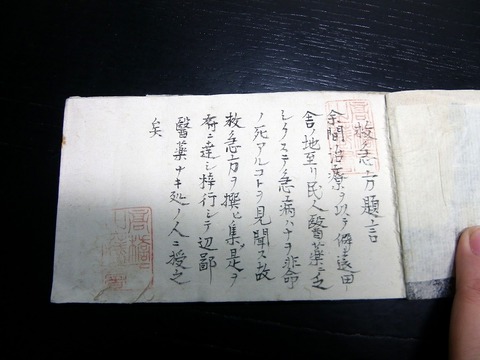 救急方題言
余間治療ヲ以テ僻遠田
舎ノ地至リ民人醫薬ニ乏
シク急病ナヲ非命
ノ死アルコトヲ見聞ス故
救急方ヲ撰ビ集 是ヲ
ニ達シ梓行シテ辺鄙
醫薬ナキ処ノ人ニ授之
矣